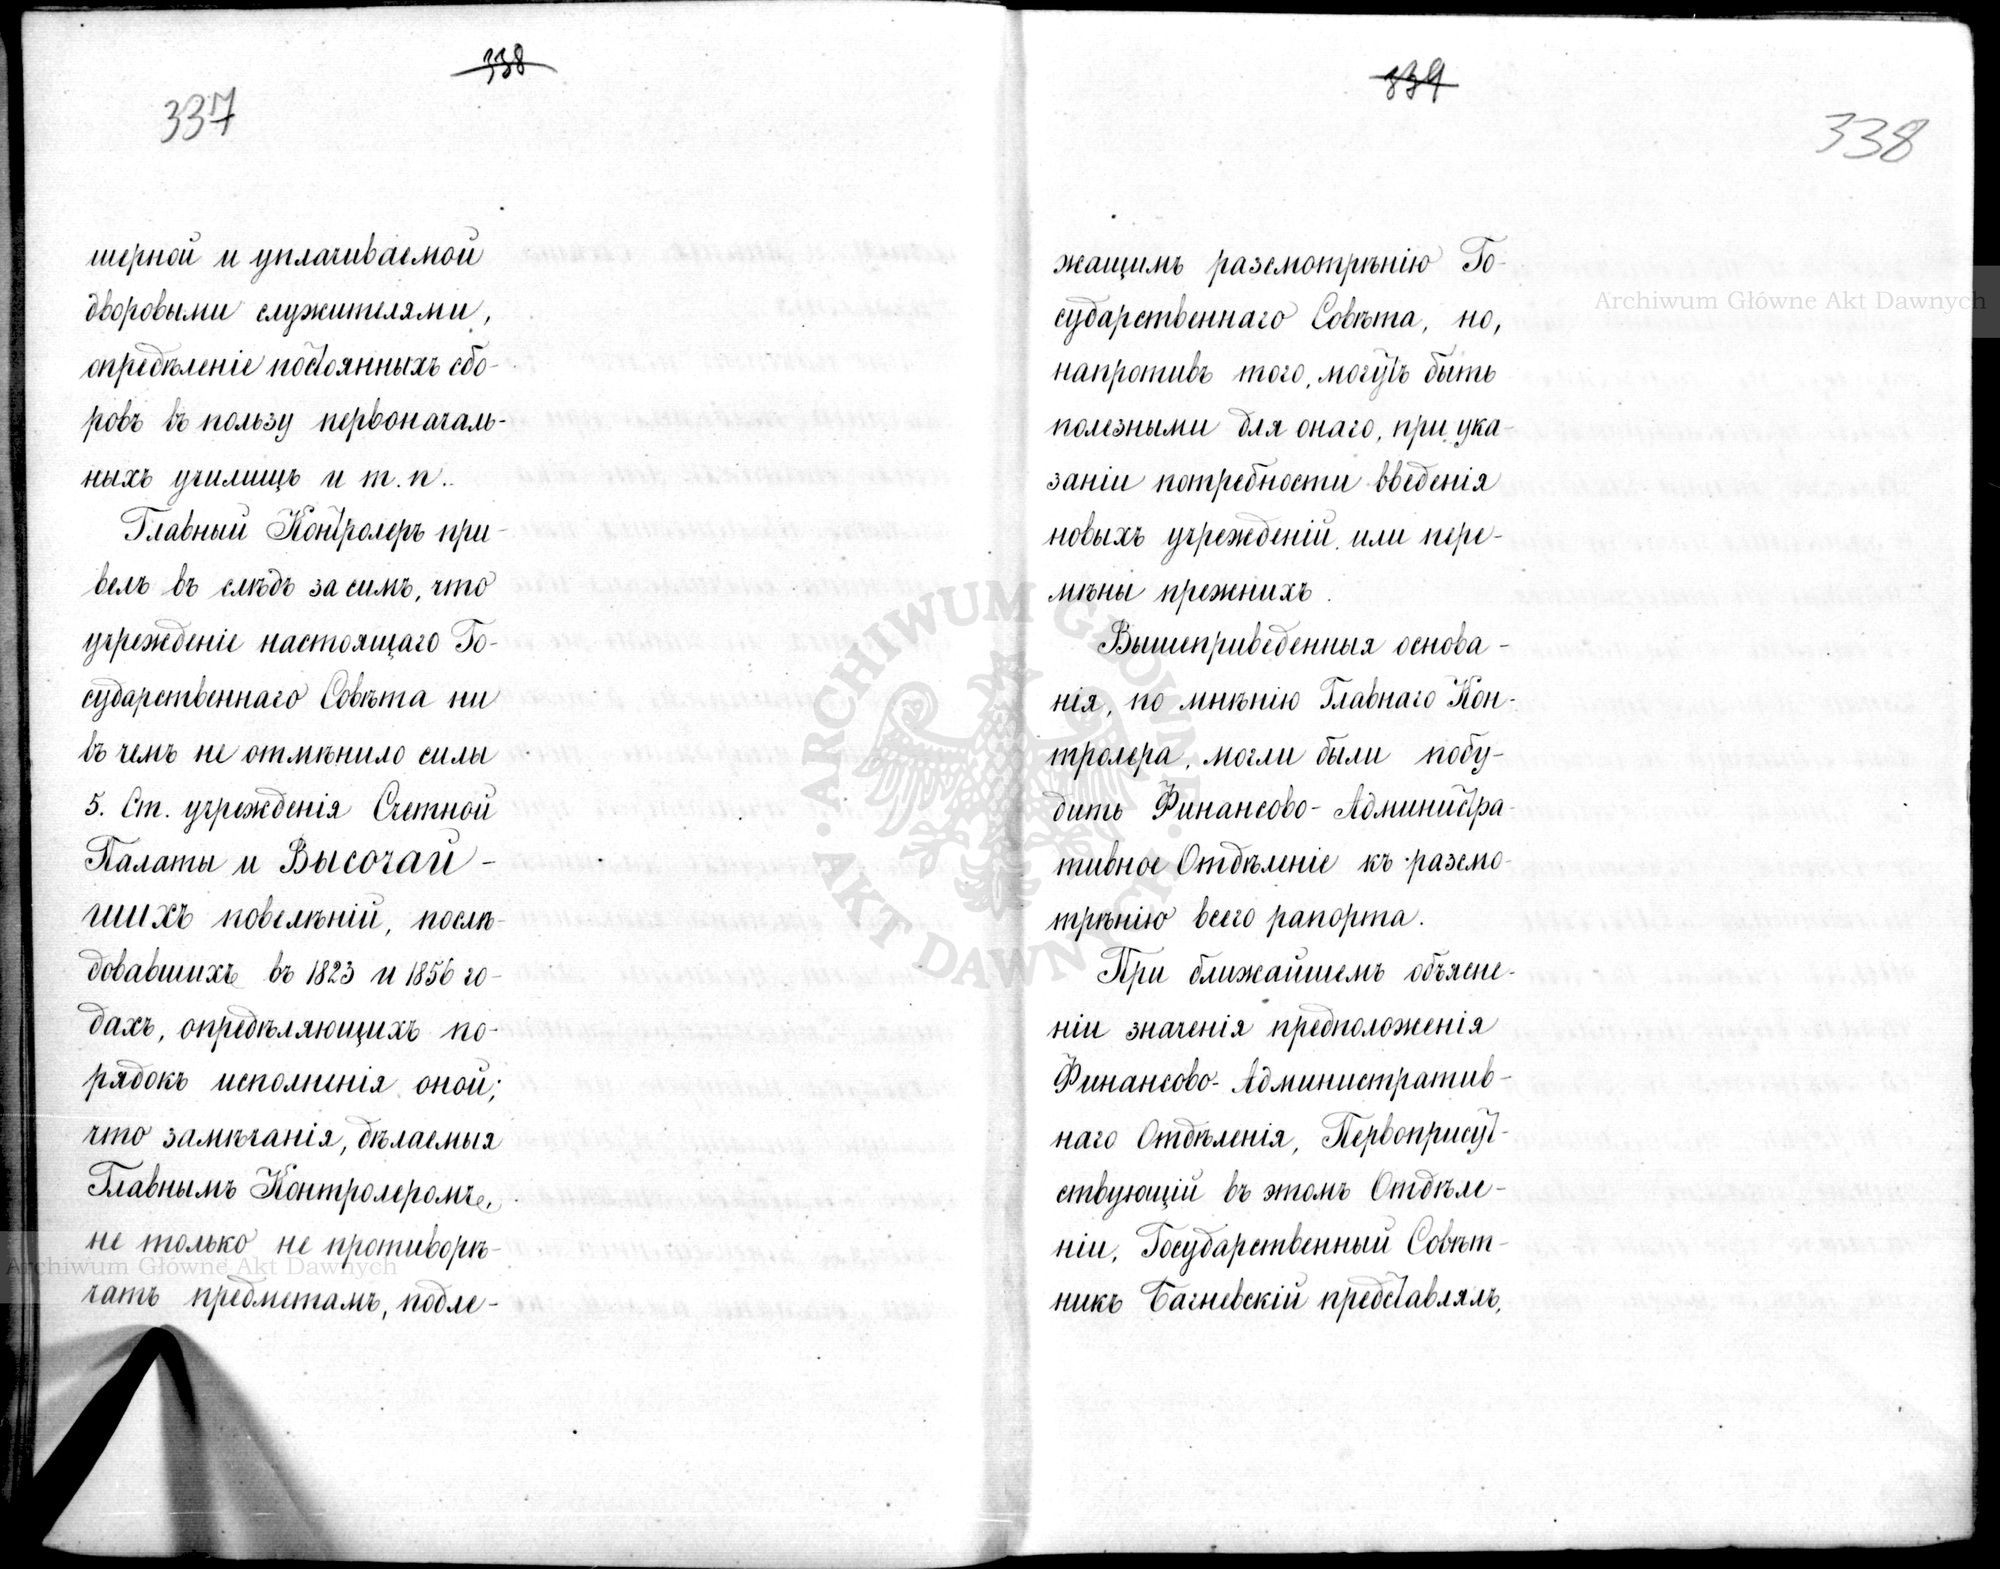 338
337
шерной и уплачиваемой
дворовыми служителями,
опредѣленіе постоянныхъ сбо-
ровъ въ пользу первоначаль-
ныхъ училищъ и т. п..
Главный Контролеръ при-
велъ въ слѣдъ за симъ, что
учрежденіе настоящаго Го-
сударственнаго Совѣта ни
въ чемъ не отмѣнило силы
5. Ст. учрежденія Счетной
Палаты и Высочай-
шихъ повелѣній, послѣ-
довавшихъ въ 1823 и 1856 го-
дахъ, опредѣляющихъ по-
рядокъ исполненія оной;
что замѣчанія, дѣлаемыя
Главнымъ Контролеромъ,
не только не противорѣ-
чатъ предметамъ, подле-
339
338
жащимъ разсмотрѣнію Го-
сударственнаго Совѣта, но,
напротивъ того, могутъ быть
полезными для онаго, при ука-
заніи потребности введенія
новыхъ учрежденій, или пере-
мѣны прежнихъ.
Вышеприведенныя основа-
нія, по мнѣнію Главнаго Кон-
тролера, могли были побу-
дить Финансово-Администра-
тивное Отдѣленіе къ разсмо-
трѣнію всего рапорта.
При ближайшемъ объясне-
ніи значенія предположенія
Финансово-Административ-
наго Отдѣленія, Первоприсут-
ствующій въ этомъ Отдѣле-
ніи, Государственный Совѣт-
никъ Багневскій представлялъ,
Archiwum Główne Akt Dawnych
Archiwum Główne Akt Dawnych
ARCHIWUM GŁÓWNE
AKT DAWNYCH